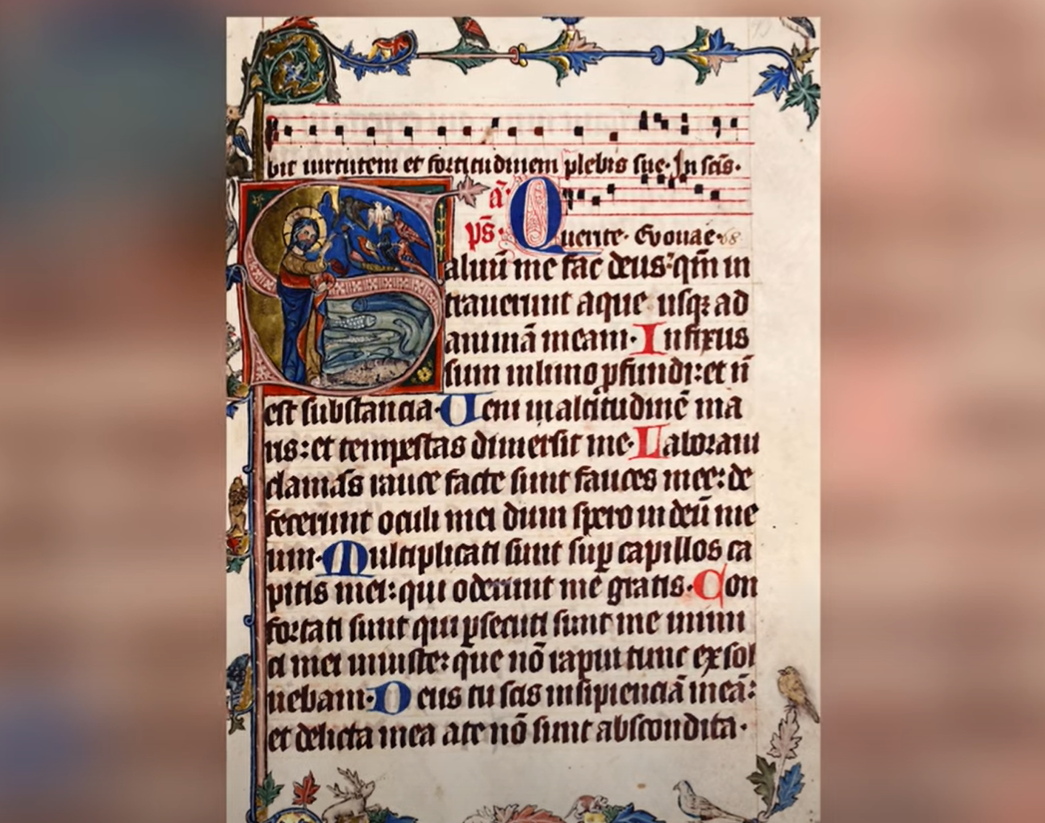 bit uirtutem et fortitudinem plebis sue. In scīs.
a. Q
ps. Querite. Evouae. 68
Saluū me fac deus: qm̄ in
trauerunt aque usqꝫ ad
animā meam. Infixus
sum in limo ꝓfundi: et n̄
est substancia. Ueni in altitudinē ma
ris: et tempestas dimersit me. Laboraui
clamās rauce facte sunt fauces mee: de
fecerunt oculi mei dum spero in deū me
um. Multiplicati sunt suꝑ capillos ca
pitis mei: qui oderunt me gratis. Con
fortati sunt qui ꝑsecuti sunt me inimi
ci mei iniuste: que nō rapui tunc exsol
uebam. Deus tu scis insipienciā meā:
et delicta mea a te nō sunt abscondita.